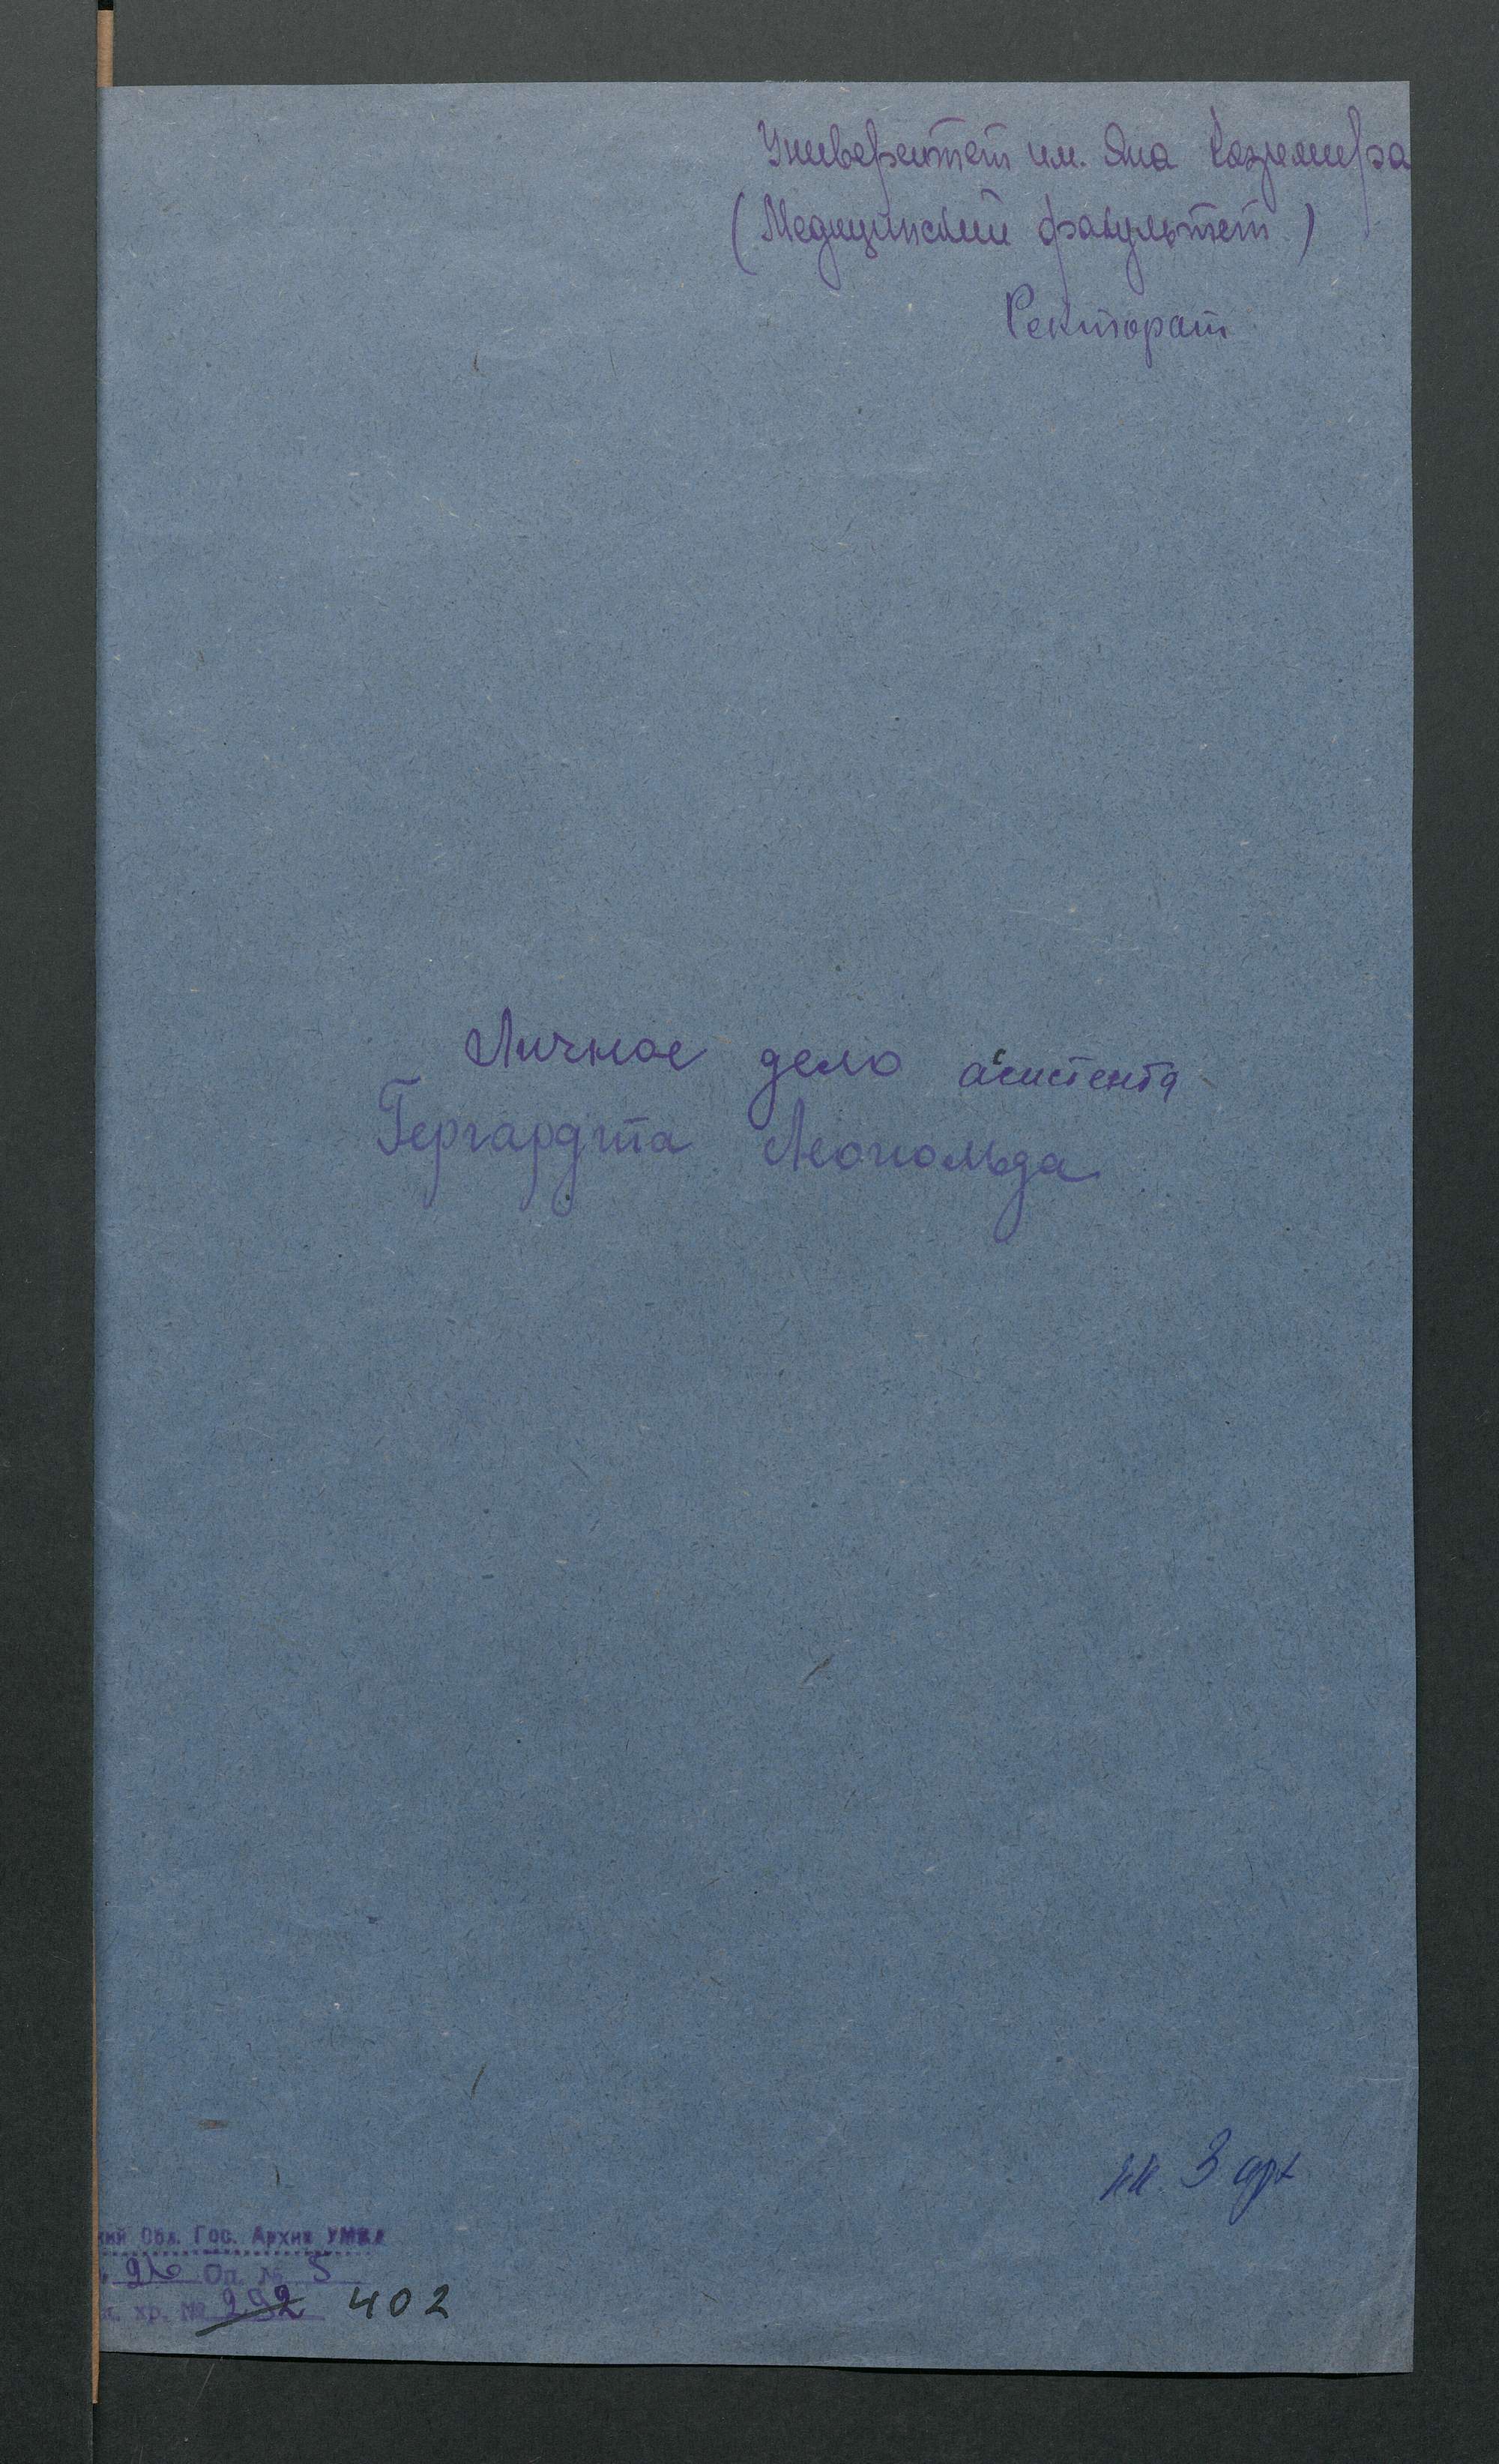 Университет им. Яна Казимира
(Медицинский факультет)
Ректорат
Личное дело асистента
Гергардта Леопольда
3
кий Обл. Гос. Архив УМВД
26 Оп. № 5
хр. № 292 402